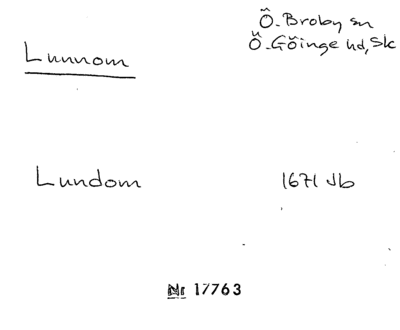 Ö. Broby sn
Lunnom
Ö. Göinge hd, Sk
Lundom 1671 Jb
Nr 17763